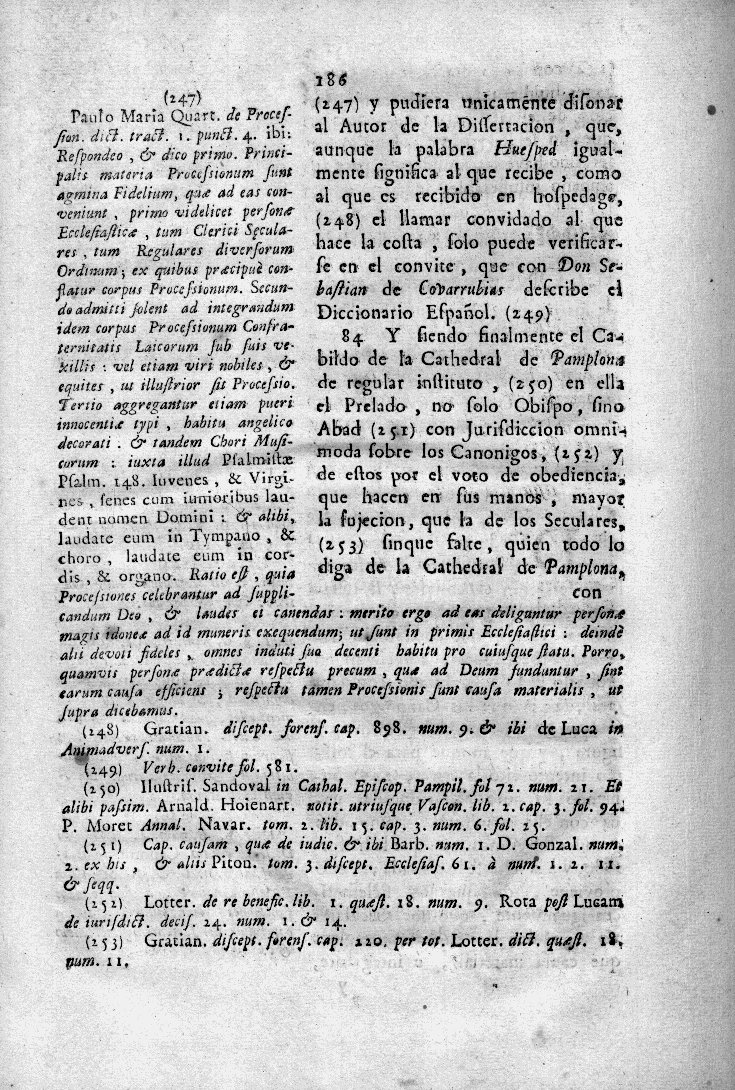 186
(247) y pudiera unicamente disonar
al Autor de la Dissertacion , que,
aunque la palabra Huesped igual-
mente significa al que recibe , como
al que es recibido en hospedage,
(248) el llamar convidado al que
hace la costa , solo puede verificar-
se en el convite , que con Don Se-
bastian de Covarrubias describe el
Diccionario Español. (249)
84 Y siendo finalmente el Ca-
bildo de la Cathedral de Pamplona
de regular instituto , (250) en ella
el Prelado , no solo Obispo, sino
Abad (251) con Jurisdiccion omni-
moda sobre los Canonigos, (252) y
de estos por el voto de obediencia,
que hacen en sus manos , mayor
la sujecion, que la de los Seculares,
(253) sinque falte , quien todo lo
diga de la Cathedral de Pamplona,
con
(247)
Paulo Maria Quart. de Proces-
sion. dict. tract. 1. punct. 4. ibi:
Respondeo , & dico primo. Princi-
palis materia Processionum sunt
agmina Fidelium, quæ ad eas con-
veniunt , primo videlicet personæ
Ecclesiasticæ , tum Clerici Secula-
res , tum Regulares diversorum
Ordinum; ex quibus præcipuè con-
flatur corpus Processionum. Secun-
do admitti solent ad integrandum
idem corpus Processionum Confra-
ternitatis Laicorum sub suis ve-
xillis : vel etiam viri nobiles , &
equites , ut illustrior sit Processio.
Tertio aggregantur etiam pueri
innocentiæ typi , habitu angelico
decorati . & tandem Chori Musi-
corum : iuxta illud Psalmistæ
Psalm. 148. Iuvenes , & Virgi-
nes , senes cum iunioribus lau-
dent nomen Domini : & alibi,
laudate eum in Tympano , &
choro , laudate eum in cor-
dis , & organo. Ratio est , quia
Processiones celebrantur ad suppli-
candum Deo , & laudes ei canendas : merito ergo ad eas deliguntur personæ
magis idoneæ ad id muneris exequendum; ut sunt in primis Ecclesiastici : deindè
alii devoti fideles , omnes induti suo decenti habitu pro cuiusque statu. Porro,
quamvis personæ prædictæ respectu precum , quæ ad Deum funduntur , sint
earum causa efficiens ; respectu tamen Processionis sunt causa materialis , ut
supra dicebamus.
(248) Gratian. discept. forens. cap. 898. num. 9. & ibi de Luca in
Animadvers. num. 1.
(249) Verb. convite fol. 581.
(250) Ilustris. Sandoval in Cathal. Episcop. Pampil. fol 72. num. 21. Et
alibi passim. Arnald. Hoienart. notit. utriusque Vascon. lib. 2. cap. 3. fol. 94.
P. Moret Annal. Navar. tom. 2. lib. 15. cap. 3. num. 6. fol. 25.
(251) Cap. causam , quæ de iudic. & ibi Barb. num. 1. D. Gonzal. num.
2. ex his , & aliis Piton. tom. 3. discept. Ecclesias. 61. à num. 1. 2. 11.
& seqq.
(252) Lotter. de re benefic. lib. 1. quæst. 18. num. 9. Rota post Lucam
de iurisdict. decis. 24. num. 1. & 14.
(253) Gratian. discept. forens. cap. 220. per tot. Lotter. dict. quæst. 18.
num. 11.